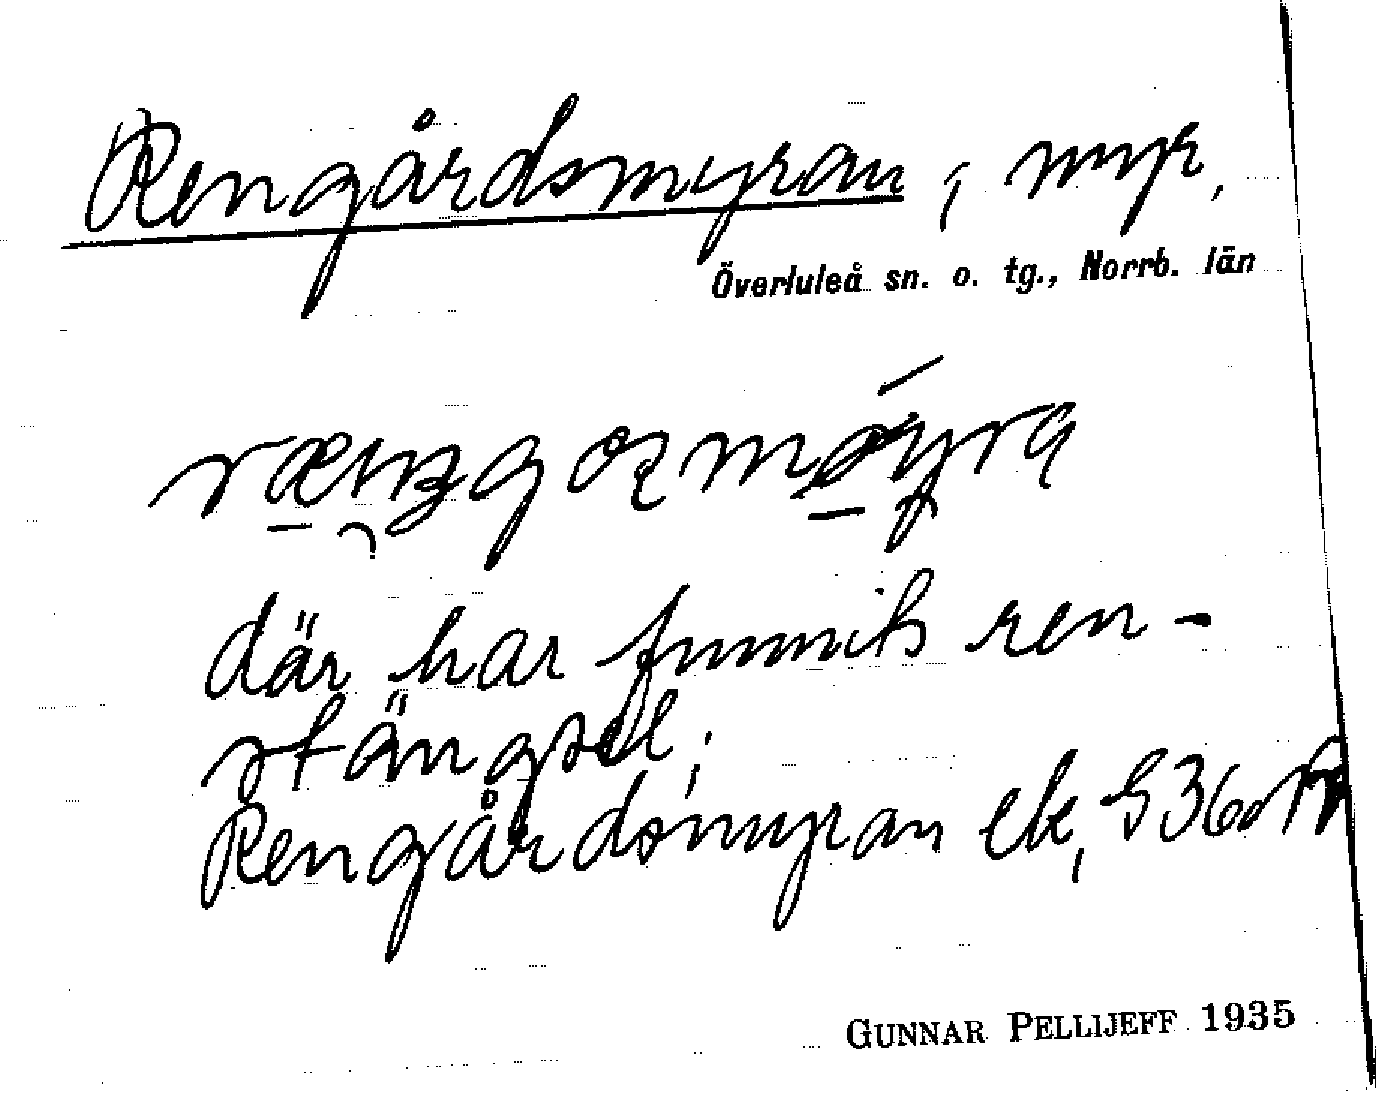 Rengårdsmyran, myr,
Överluleå sn. o. tg., Norrb. län
där har funnits ren-
stängsel;
Rengårdsmyran ek, S36
GUNNAR PELLIJEFF 1935